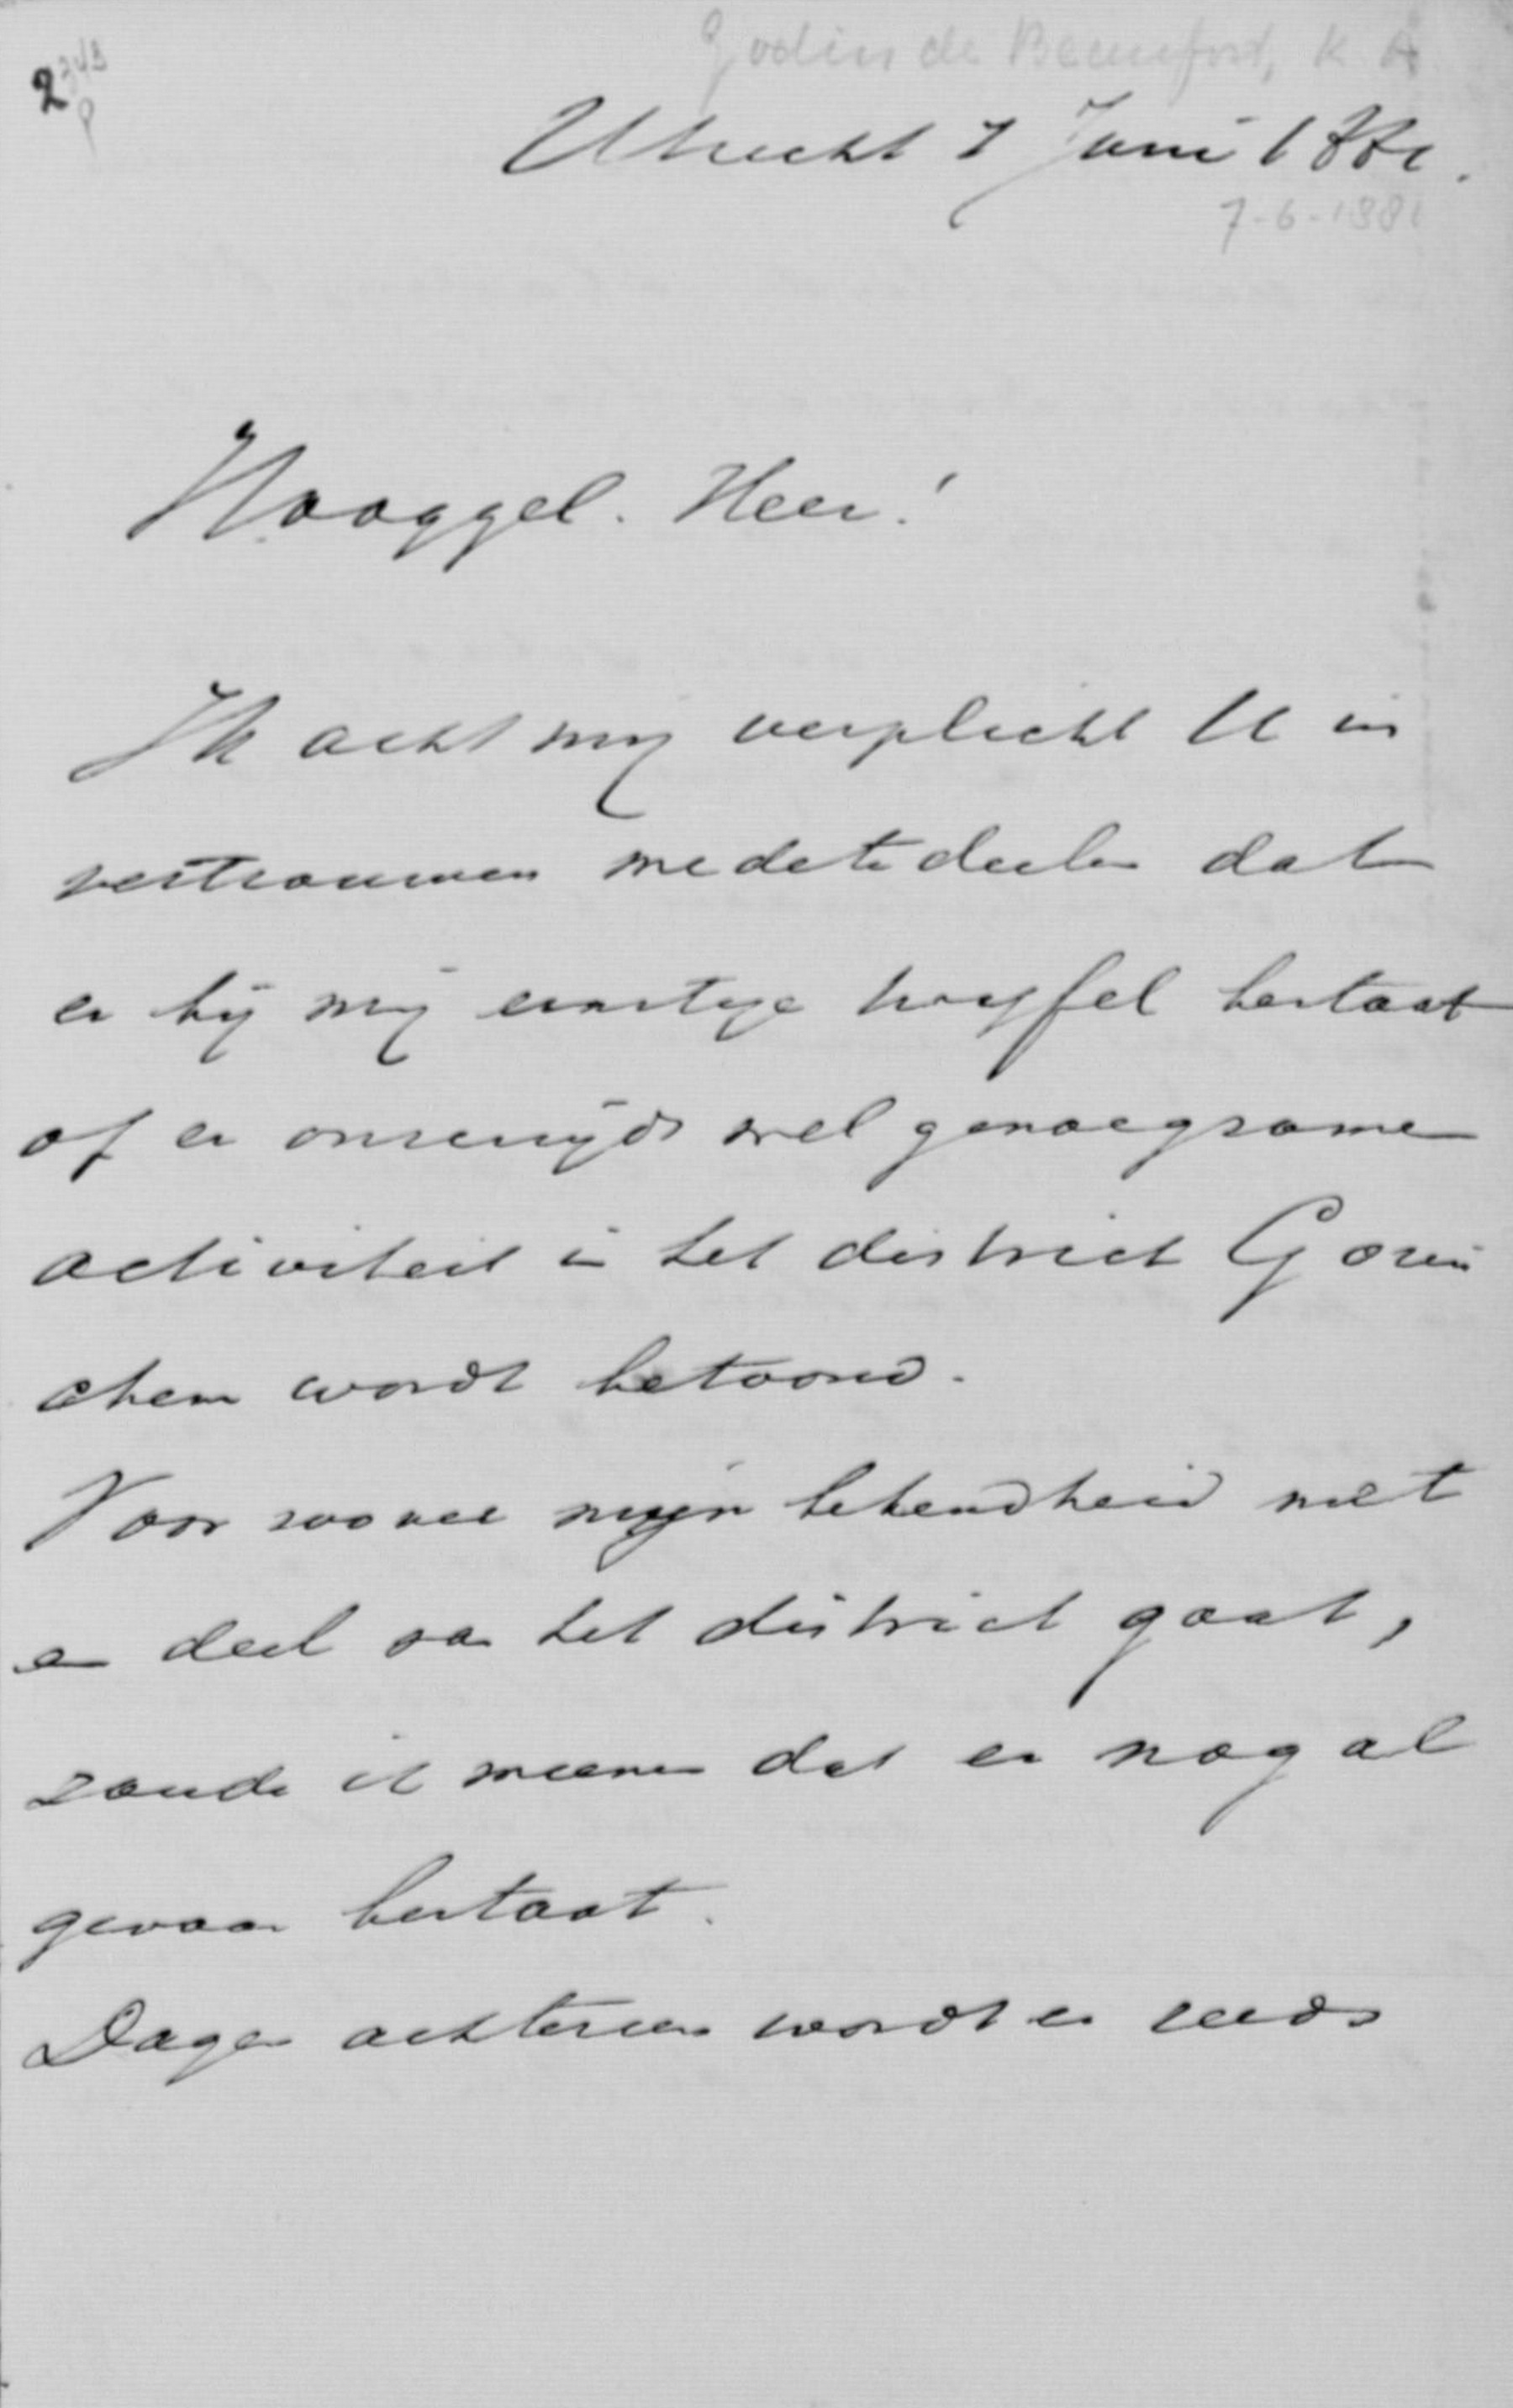 Godin de Beaufort, K. A.
2343
P
Utrecht 7 Juni 1881.
7-6-1881
Hooggel. Heer!
Ik acht mij verplicht U in
vertrouwen mede te deelen dat
er bij mij ernstige twijfel bestaat
of er onzerzijds wel genoegzame
activiteit in het district Gorin
chem wordt betoond.
Voor zooveel mijn bekendheid met
een deel van het district gaat,
zoude ik meenen dat er nog al
gevaar bestaat.
Dagen achtereen wordt er reeds